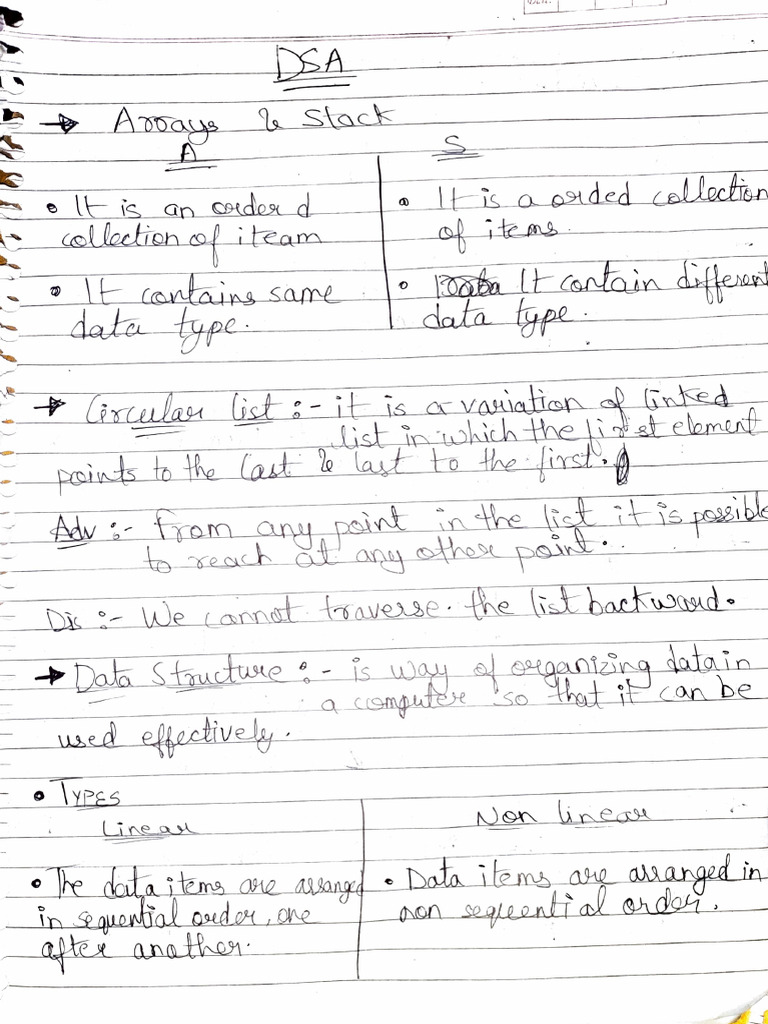 DSA
→ Arrays & Stack
A
S
• It is an orderd
collection of iteam
• It contains same
data type.
• It is a orded collection
of items.
• It contain different
data type.
→ Circular list :- it is a variation of linked
list in which the first element
points to the last & last to the first.
Adv :- from any point in the list it is possible
to reach at any other point.
Dis :- We cannot traverse. the list backward.
→ Data Structure :- is way of organizing data in
a computer so that it can be
used effectively.
• TYPES
Linear
Non linear
• The data items are arranged
in sequential order, one
after another.
• Data items are arranged in
non sequential order.